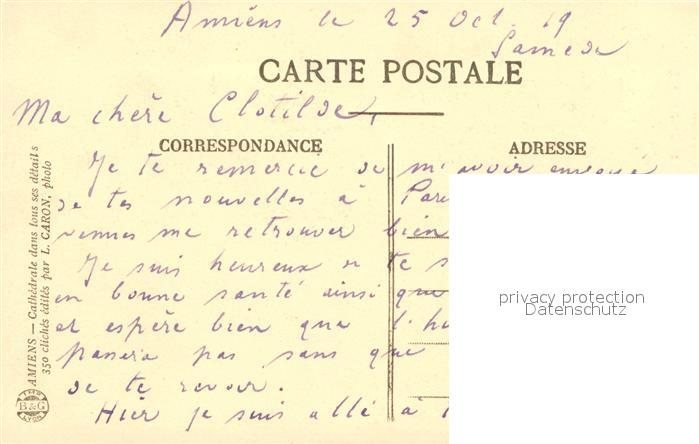 Amiens le 25 Oct. 19
Samedi
CARTE POSTALE
Ma chère Clotilde,
CORRESPONDANCE
ADRESSE
Je te remercie de m'avoir envoyé
de tes nouvelles à
venues me retrouver bien
Je suis heureux de te
en bonne santé ainsi que
et espère bien que l'
passera pas sans que
de te revoir.
Hier je suis allé à
AMIENS — Cathédrale dans tous ses détails
350 clichés édités par L. CARON, photo
B&G
LYON
privacy protection
Datenschutz